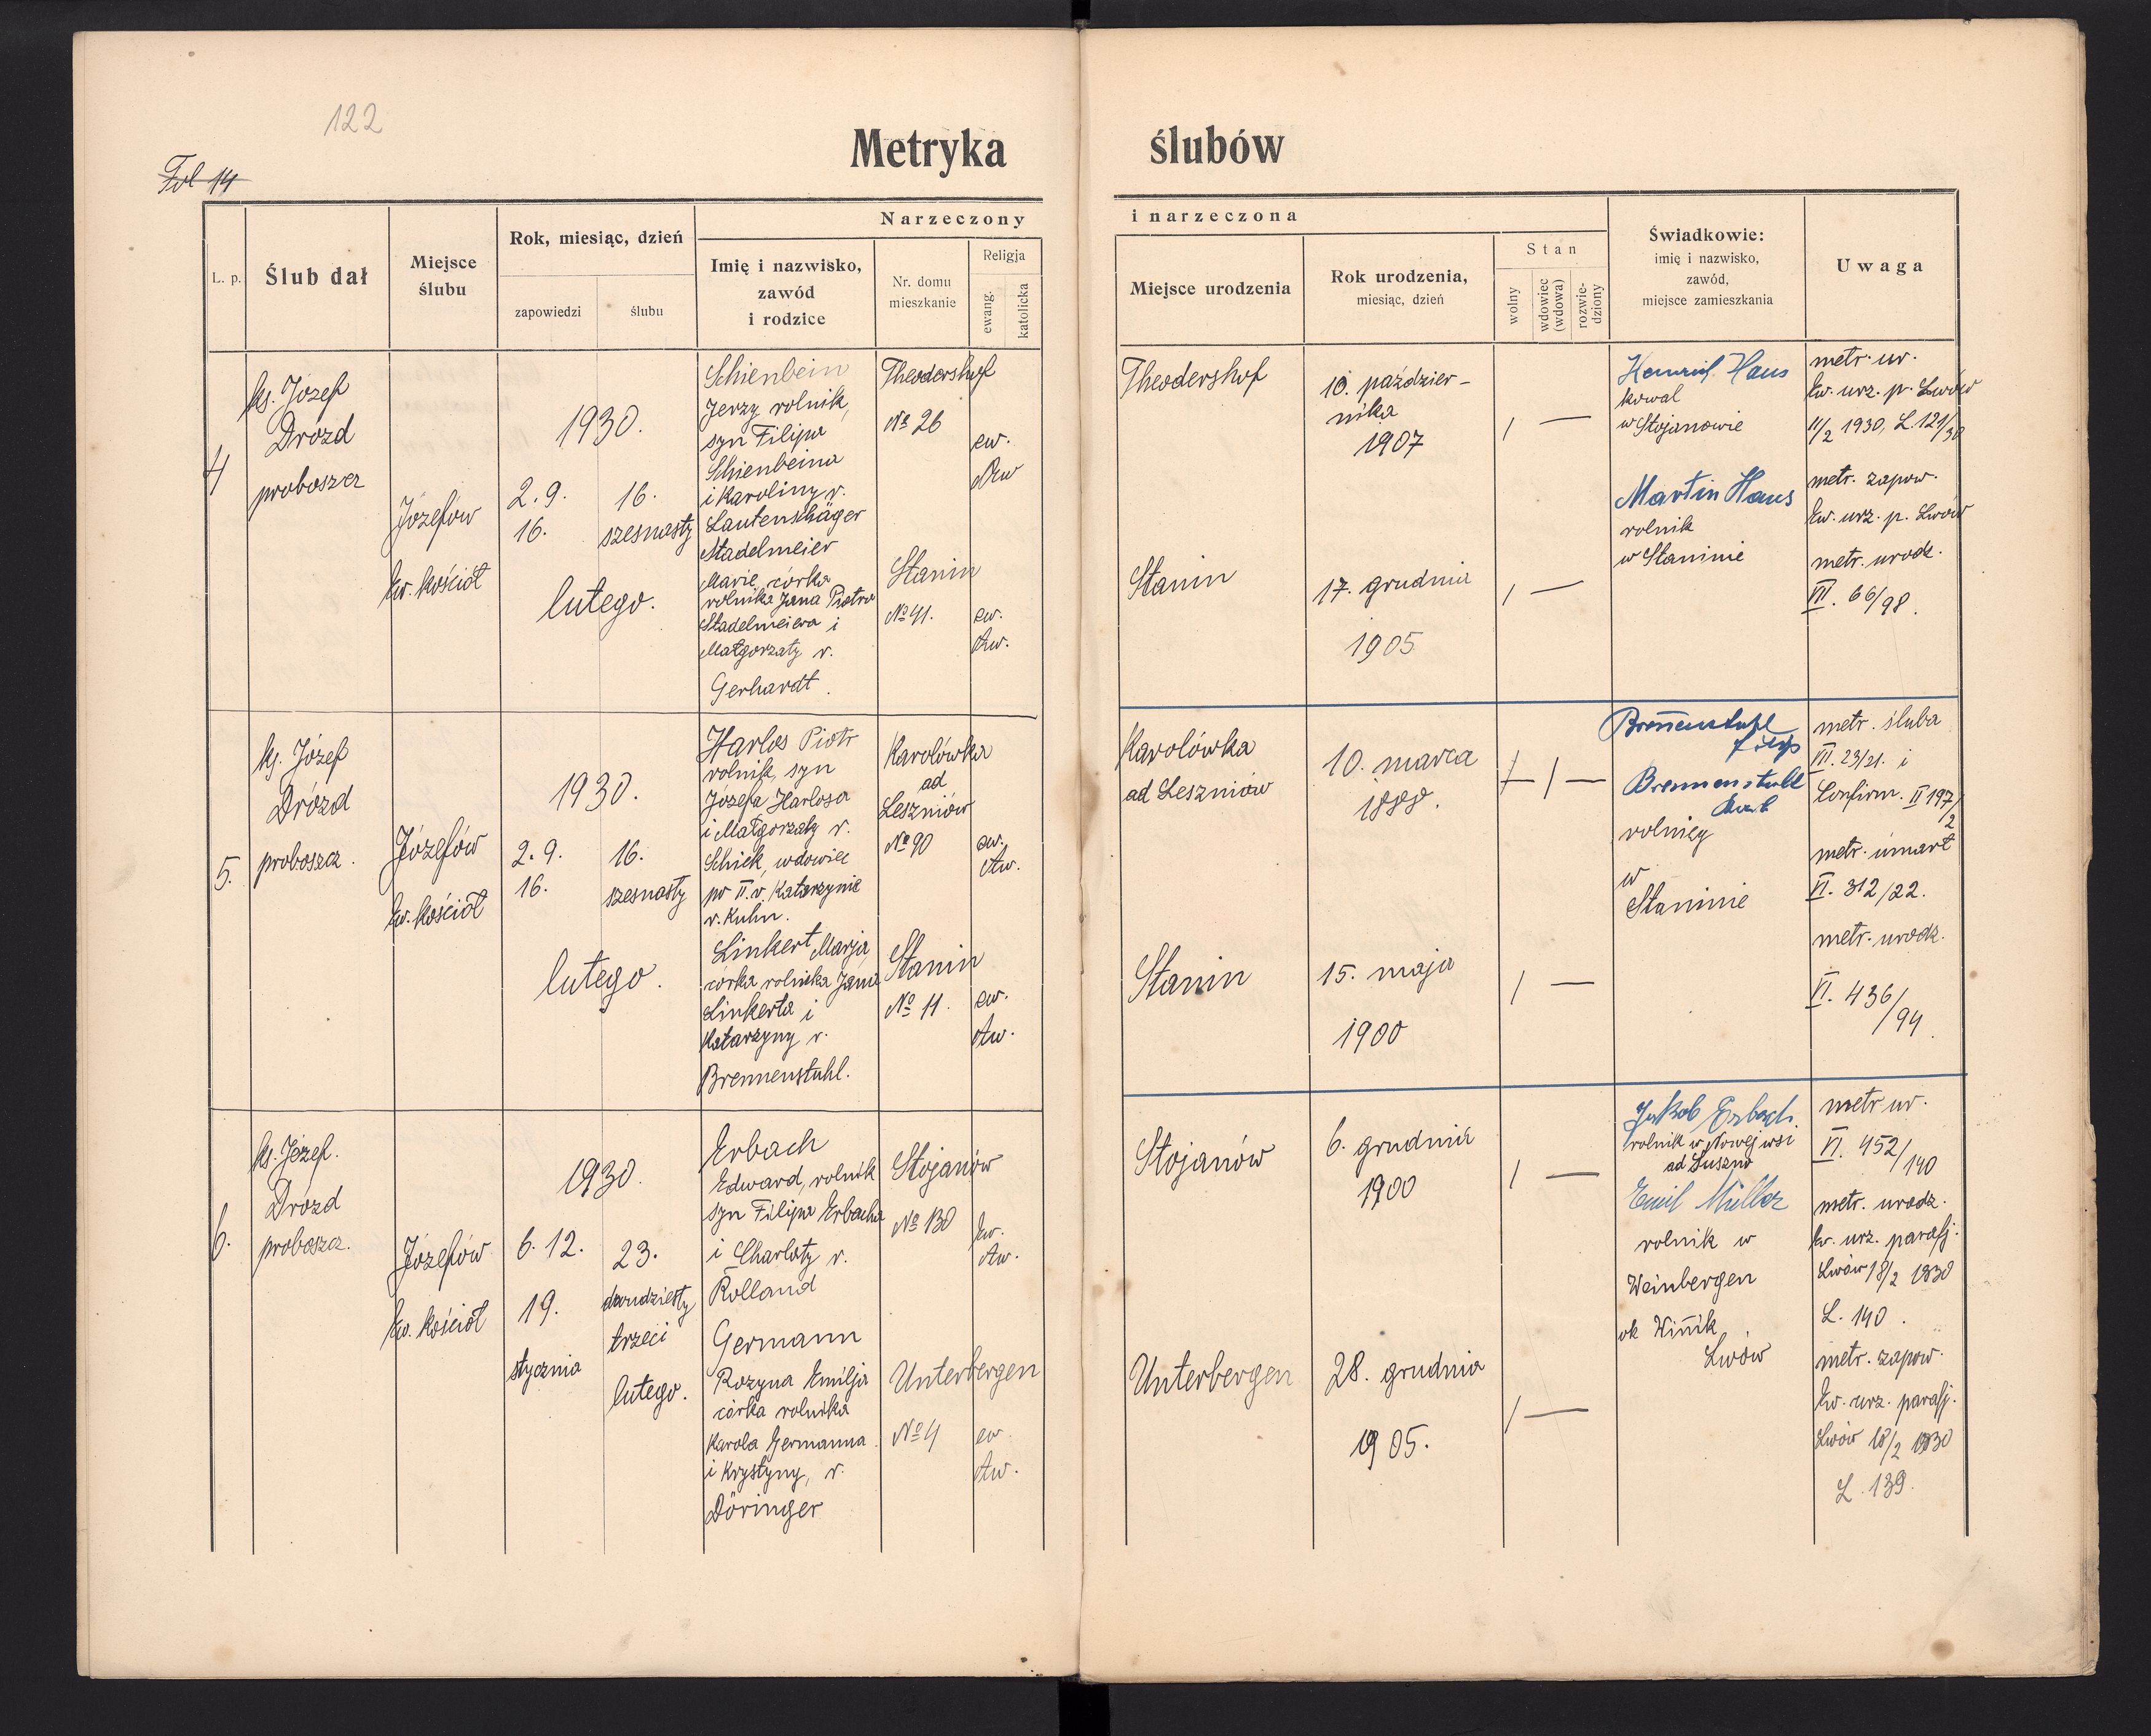 122
Fol 14
Metryka ślubów
L. p.
Ślub dał
Miejsce
ślubu
Rok, miesiąc, dzień
zapowiedzi
ślubu
Narzeczony
Imię i nazwisko,
zawód
i rodzice
Nr. domu
mieszkanie
Religja
ewang.
katolicka
i narzeczona
Miejsce urodzenia
Rok urodzenia,
miesiąc, dzień
Stan
wolny
wdowiec
(wdowa)
rozwie-
dziony
Świadkowie:
imię i nazwisko,
zawód,
miejsce zamieszkania
Uwaga
4
ks. Józef
Drózd
proboszcz
Józefów
Ew. kościół
1930.
2. 9.
16.
16.
szesnasty
lutego.
Schienbein
Jerzy rolnik,
syn Filipa
Schienbeina
i Karoliny r.
Lautenschäger
Stadelmeier
Marie, córka
rolnika Jana Piotra
Stadelmeiera i
Małgorzaty r.
Gerhardt.
Theodershof
№ 26
ew.
Stanin
№ 41.
ew.
Theodershof
10. paździer-
nika
1907
Stanin
17. grudnia
1905
Heinrich Haus
kowal
w Stojanowie
Martin Haus
rolnik
w Staninie
metr. ur.
Ew. urz. p. Lwów
11/2 1930, L. 121/30
metr. zapow.
Ew. urz. p. Lwów
metr. urodz.
VII. 66/98.
5.
ks. Józef
Drózd
proboszcz.
Józefów
Ew. kościół
1930.
2. 9.
16.
16.
szesnasty
lutego.
Harlos Piotr
rolnik, syn
Józefa Harlosa
i Małgorzaty r.
Schick, wdowiec
po II. v. Katarzynie
r. Kuhn.
Linkert Marja
córka rolnika Jana
Linkerta i
Katarzyny r.
Brennenstuhl.
Karolówka
ad
Leszniów
№ 90
ew.
Stanin
№ 11.
ew.
Karolówka
ad Leszniów
10. marca
1888.
Stanin
15. maja
1900
Brennenstuhl
Filip
Brennenstuhl
rolnicy
w
Staninie
metr. ślubu
III. 23/21. i
Confirm. II 197/2
metr. umart
VI. 312/22.
metr. urodz.
VI. 436/94.
6.
ks. Józef.
Drózd
proboszcz.
Józefów
Ew. kościół
1930
6. 12.
19.
stycznia
23.
dwudziesty
trzeci
lutego.
Erbach
Edward, rolnik
syn Filipa Erbacha
i Charloty r.
Rolland
Germann
Rozyna Emilja
córka rolnika
Karola Germanna
i Krystyny, r.
Döringer
Stojanów
№ 130
Ew.
Unterbergen
№ 4
ew.
Stojanów
6. grudnia
1900
Unterbergen
28. grudnia
1905.
Jakob Erbach.
rolnik w Nowej wsi
ad Suszno
Emil Müller
rolnik w
Weinbergen
ok Winnik
Lwów
metr ur.
VI. 452/140
metr. urodz.
Ew. urz. parafj.
Lwów 18/2 1930
L. 140.
metr. zapow.
Ew. urz. parafj.
Lwów 18/2 1930
L. 139.